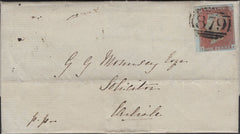 879
G G Mounsey Esqr
Solicitor
Carlisle
p.p.